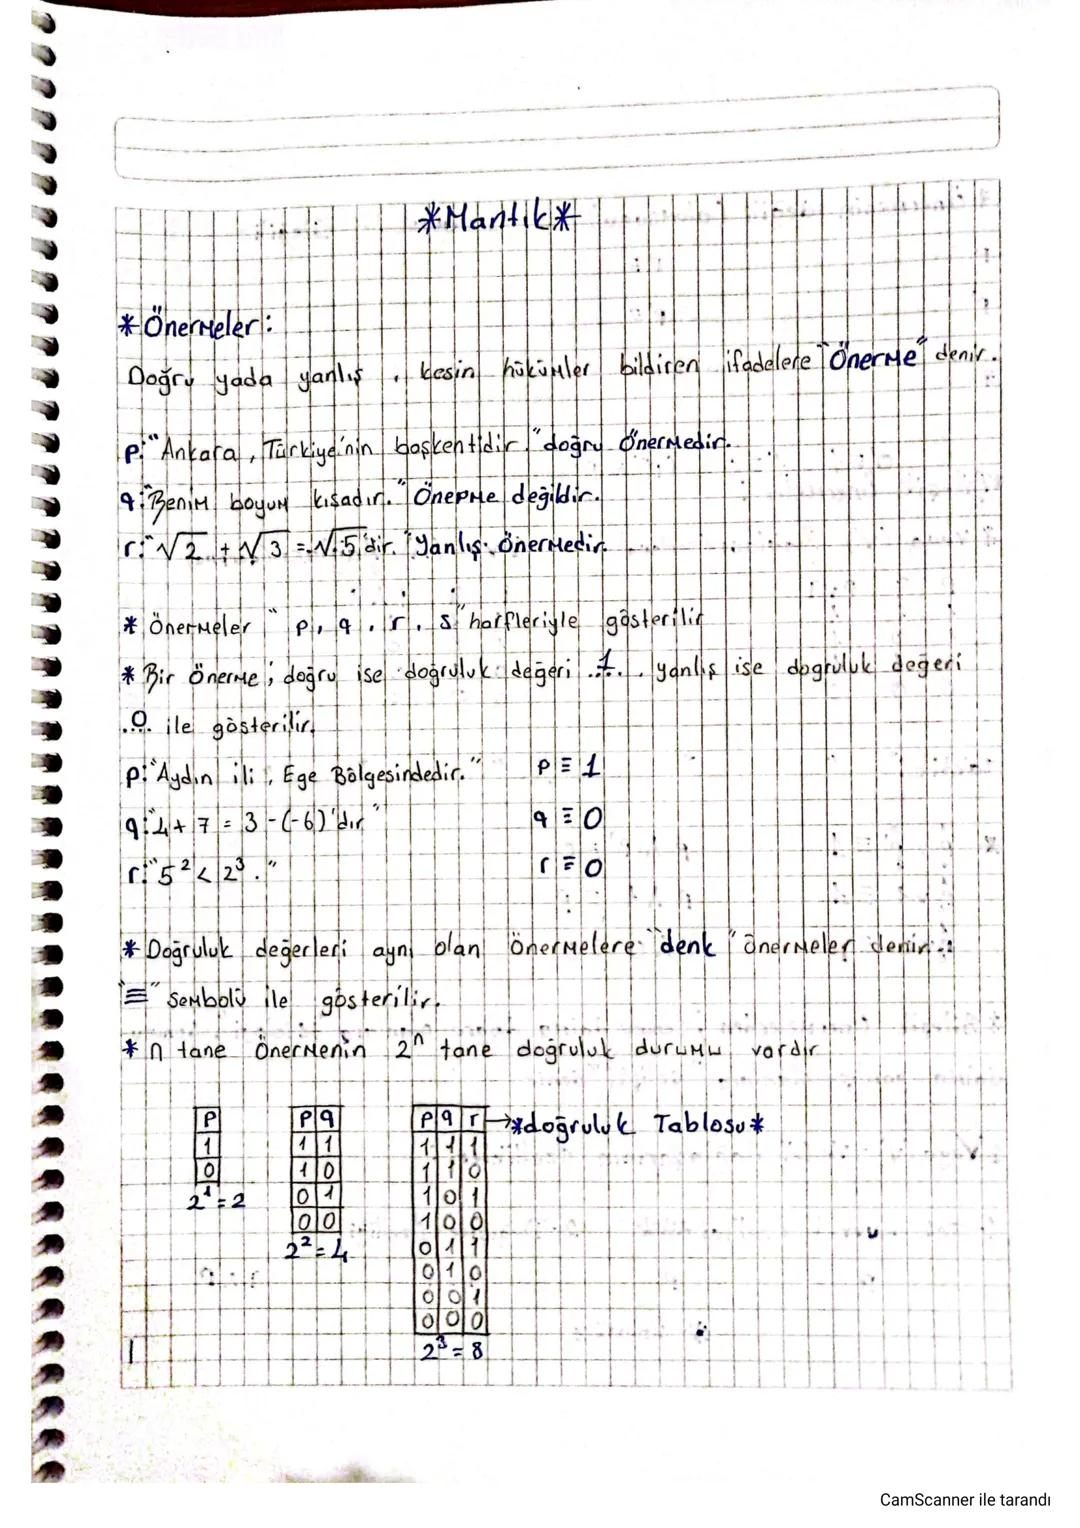 *Mantık*
*Önermeler:
Doğru yada yanlış, kesin hükümler bildiren ifadelere "Önerme" denir.
p:"Ankara, Türkiye'nin başkentidir." doğru önermedir.
q:"Benim boyum kısadır." Önerme değildir.
r:"√2 + √3 = √5'dir." Yanlış önermedir.
* Önermeler "p, q, r, s" harfleriyle gösterilir
* Bir önerme; doğru ise doğruluk değeri ..1.. yanlış ise dogruluk değeri
..0.. ile gösterilir.
p:"Aydın ili, Ege Bölgesindedir." p ≡ 1
q:"4+7 = 3-(-6)'dır" q ≡ 0
r:"5² < 2³." r ≡ 0
* Doğruluk değerleri aynı olan önermelere "denk" önermeler denir.
"≡" sembolü ile gösterilir.
* n tane önermenin 2ⁿ tane doğruluk durumu vardır
p p q p q r →*doğruluk Tablosu*
1 1 1 1 1 1
0 1 0 1 1 0
2¹=2 0 1 1 0 1
0 0 1 0 0
2²=4 0 1 1
0 1 0
0 0 1
0 0 0
1 2³=8
CamScanner ile tarandı